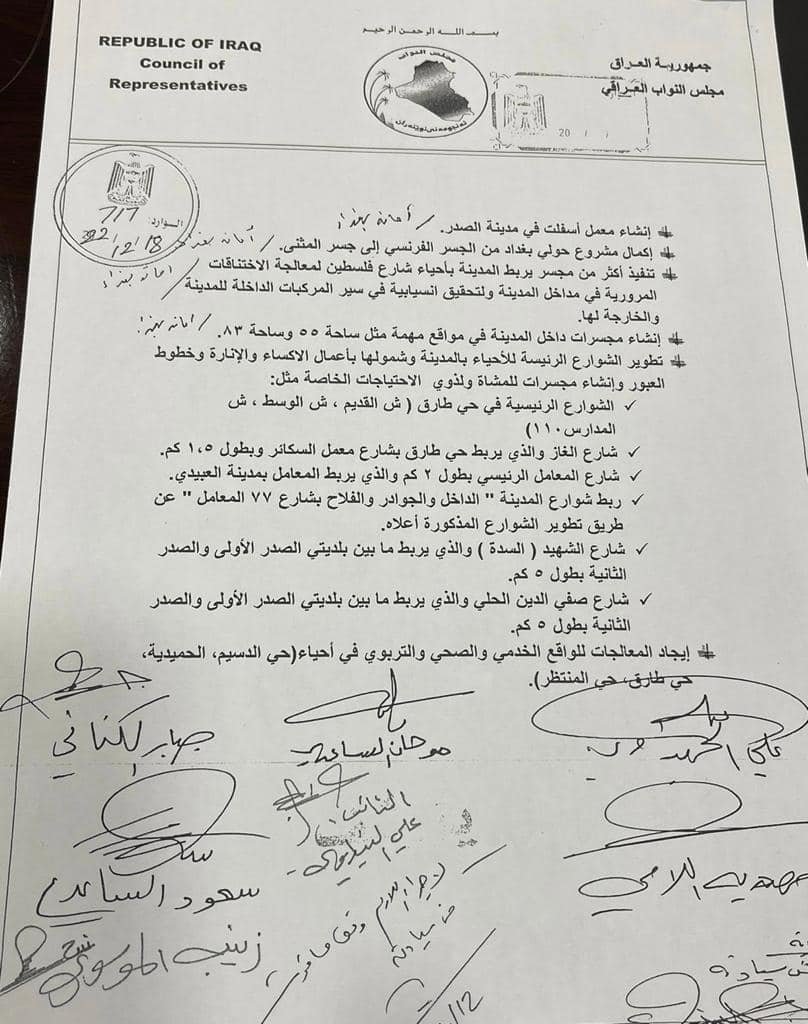 بسم الله الرحمن الرحيم
REPUBLIC OF IRAQ
Council of
Representatives
جمهورية العراق
مجلس النواب العراقي
مجلس النواب
20 / /
الوارد:
717
2022/12/18
إنشاء معمل أسفلت في مدينة الصدر. / أمانة بغداد
إكمال مشروع حولي بغداد من الجسر الفرنسي إلى جسر المثنى. / أمانة بغداد
تنفيذ أكثر من مجسر يربط المدينة بأحياء شارع فلسطين لمعالجة الاختناقات
المرورية في مداخل المدينة ولتحقيق انسيابية في سير المركبات الداخلة للمدينة / امانة بغداد
والخارجة لها.
إنشاء مجسرات داخل المدينة في مواقع مهمة مثل ساحة ٥٥ وساحة ٨٣. / امانة بغداد
تطوير الشوارع الرئيسة للأحياء بالمدينة وشمولها بأعمال الاكساء والإنارة وخطوط
العبور وإنشاء مجسرات للمشاة ولذوي الاحتياجات الخاصة مثل:
✓ الشوارع الرئيسية في حي طارق ( ش القديم ، ش الوسط ، ش
المدارس ١١٠)
✓ شارع الغاز والذي يربط حي طارق بشارع معمل السكائر وبطول ١،٥ كم.
✓ شارع المعامل الرئيسي بطول ٢ كم والذي يربط المعامل بمدينة العبيدي.
✓ ربط شوارع المدينة " الداخل والجوادر والفلاح بشارع ٧٧ المعامل " عن
طريق تطوير الشوارع المذكورة أعلاه.
✓ شارع الشهيد ( السدة ) والذي يربط ما بين بلديتي الصدر الأولى والصدر
الثانية بطول ٥ كم.
✓ شارع صفي الدين الحلي والذي يربط ما بين بلديتي الصدر الأولى والصدر
الثانية بطول ٥ كم.
إيجاد المعالجات للواقع الخدمي والصحي والتربوي في أحياء(حي الدسيم، الحميدية،
حي طارق، حي المنتظر).
جبار الكناني
موحان الساعدي
علي
النائب
علي
سعود الساعدي
مهدية اللامي
زينب الموسوي